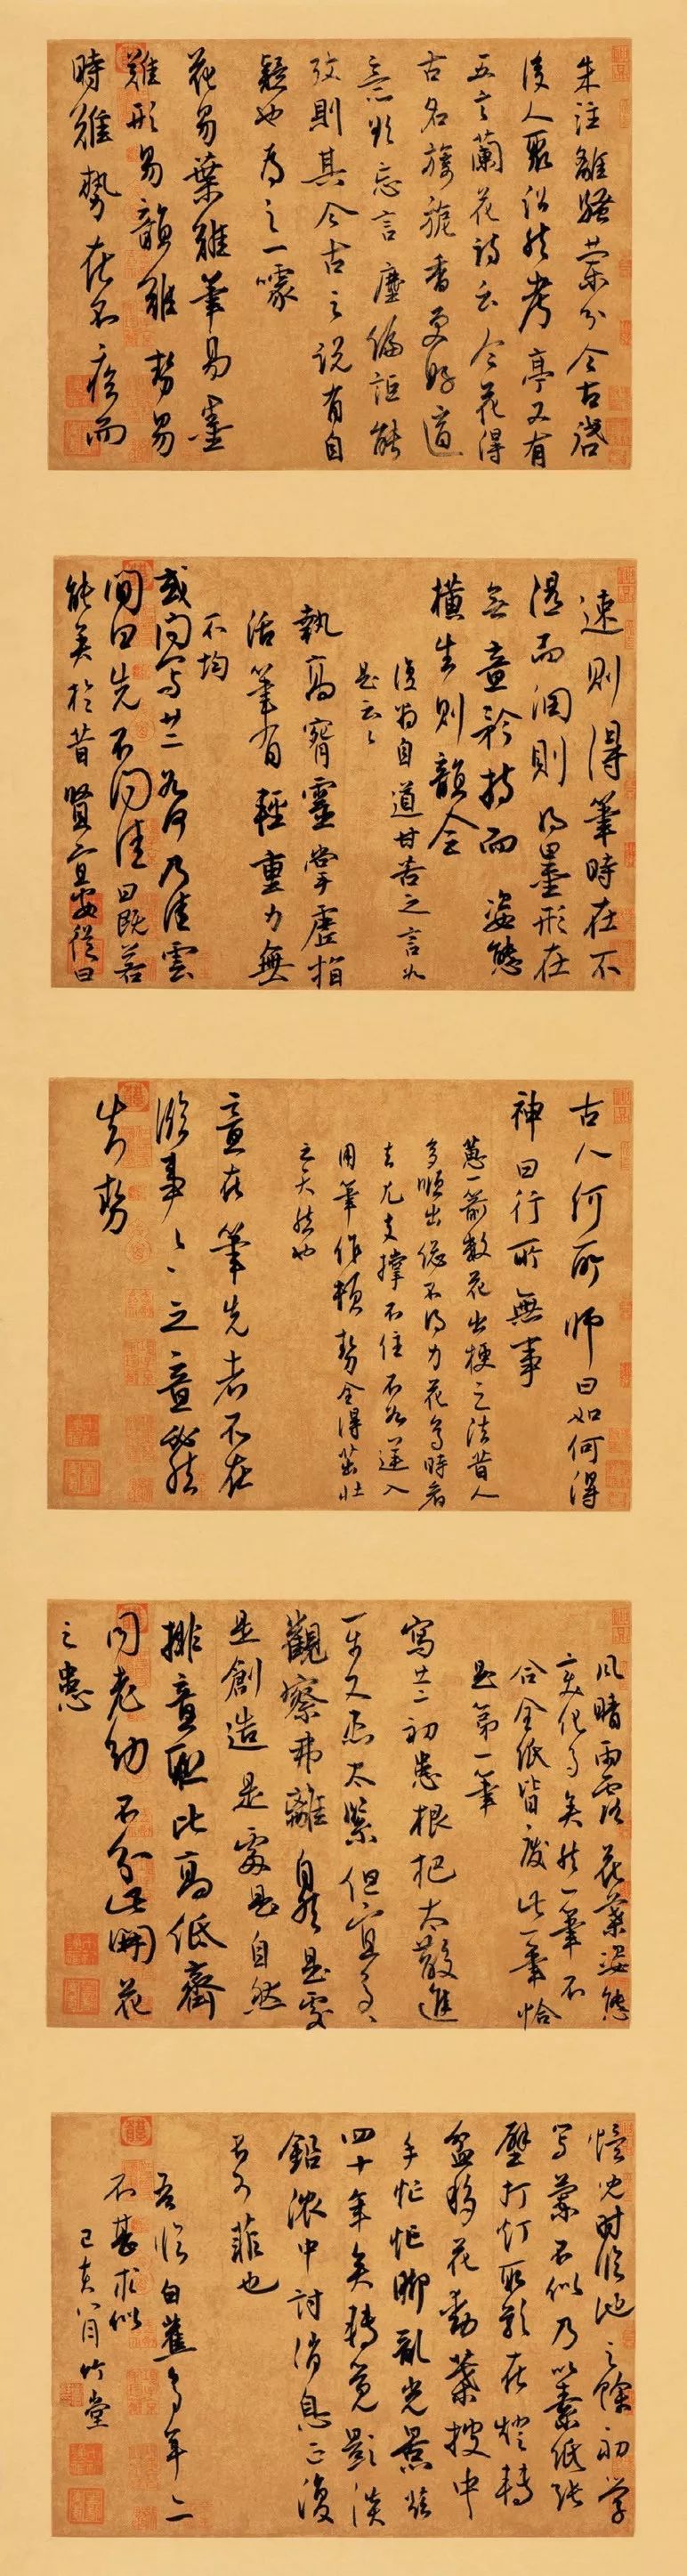 朱註離騷蘭分今古啓
後人聚訟然考亭又有
五言蘭花詩云今花得
古名旖旎香更好適
意欲忘言塵編詎能
攷則其今古之説有自
疑也為之一噱
花易葉難筆易墨
難形易韻難勢易
時難勢在不疾而
速則得筆時在不
濕而潤則得墨形在
無意矜持而姿態
橫生則韻全
復翁自道甘苦之言如
是云云
執高臂靈掌虛指
活筆有輕重力無
不均
或问写兰如何乃佳雲
間曰先不问佳曰既若
能美於昔賢宜要從曰
古人何所師曰如何得
神曰行所無事
蕙一箭數花出梗之法昔人
多順出總不得力花多時者
去尤支撐不住不如逆入
用筆作頓勢全得茁壯
之天然也
意在筆先者不在
臨事之意必然
失勢
風晴雨露花葉姿態
變化多矣然一筆不
合全紙皆廢此一筆恰
是第一筆
寫兰初患根杷太散進
一步又患太緊但宜多
觀察弗離自然是处
是創造是處是自然
排意取比高低齊
同老幼不分此開花
之患
憶兒時臨池之餘初學
写蘭不似乃以素紙張
壁打灯取影在燈轉
盆移花動葉搜中
手忙脚亂光景茲
四十年矣轉覓影淡
鉛濃中討消息已復
吾臨白蕉多年二
不甚求似
己亥八月竹堂